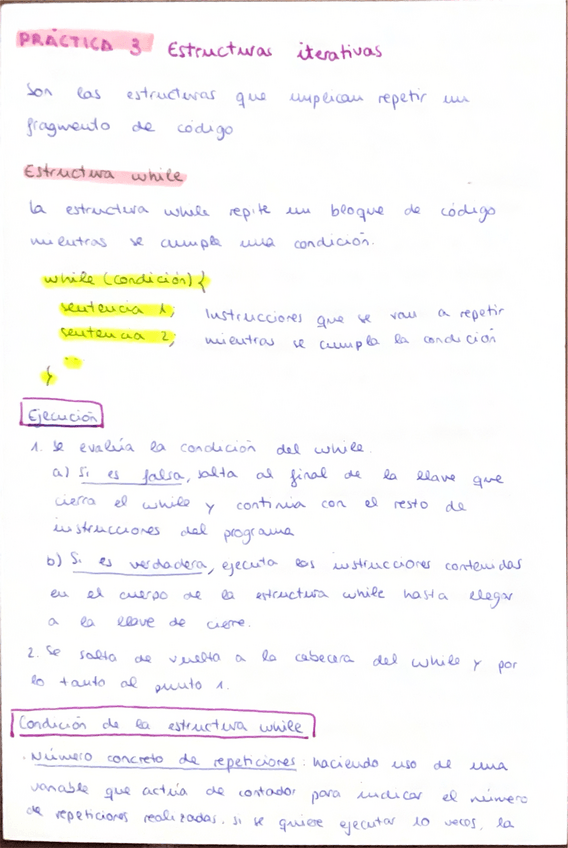 PRÁCTICA 3 Estructuras iterativas
Son las estructuras que implican repetir un
fragmento de código
Estructura while
La estructura while repite un bloque de código
mientras se cumpla una condición.
while (condición) {
sentencia 1; Instrucciones que se van a repetir
sentencia 2; mientras se cumpla la condición
...
}
Ejecución
1. Se evalúa la condición del while.
a) Si es falsa, salta al final de la llave que
cierra el while y continúa con el resto de
instrucciones del programa
b) Si es verdadera, ejecuta las instrucciones contenidas
en el cuerpo de la estructura while hasta llegar
a la llave de cierre.
2. Se salta de vuelta a la cabecera del while y por
lo tanto al punto 1.
Condición de la estructura while
· Número concreto de repeticiones: haciendo uso de una
variable que actúa de contador para indicar el número
de repeticiones realizadas. Si se quiere ejecutar 10 veces, la